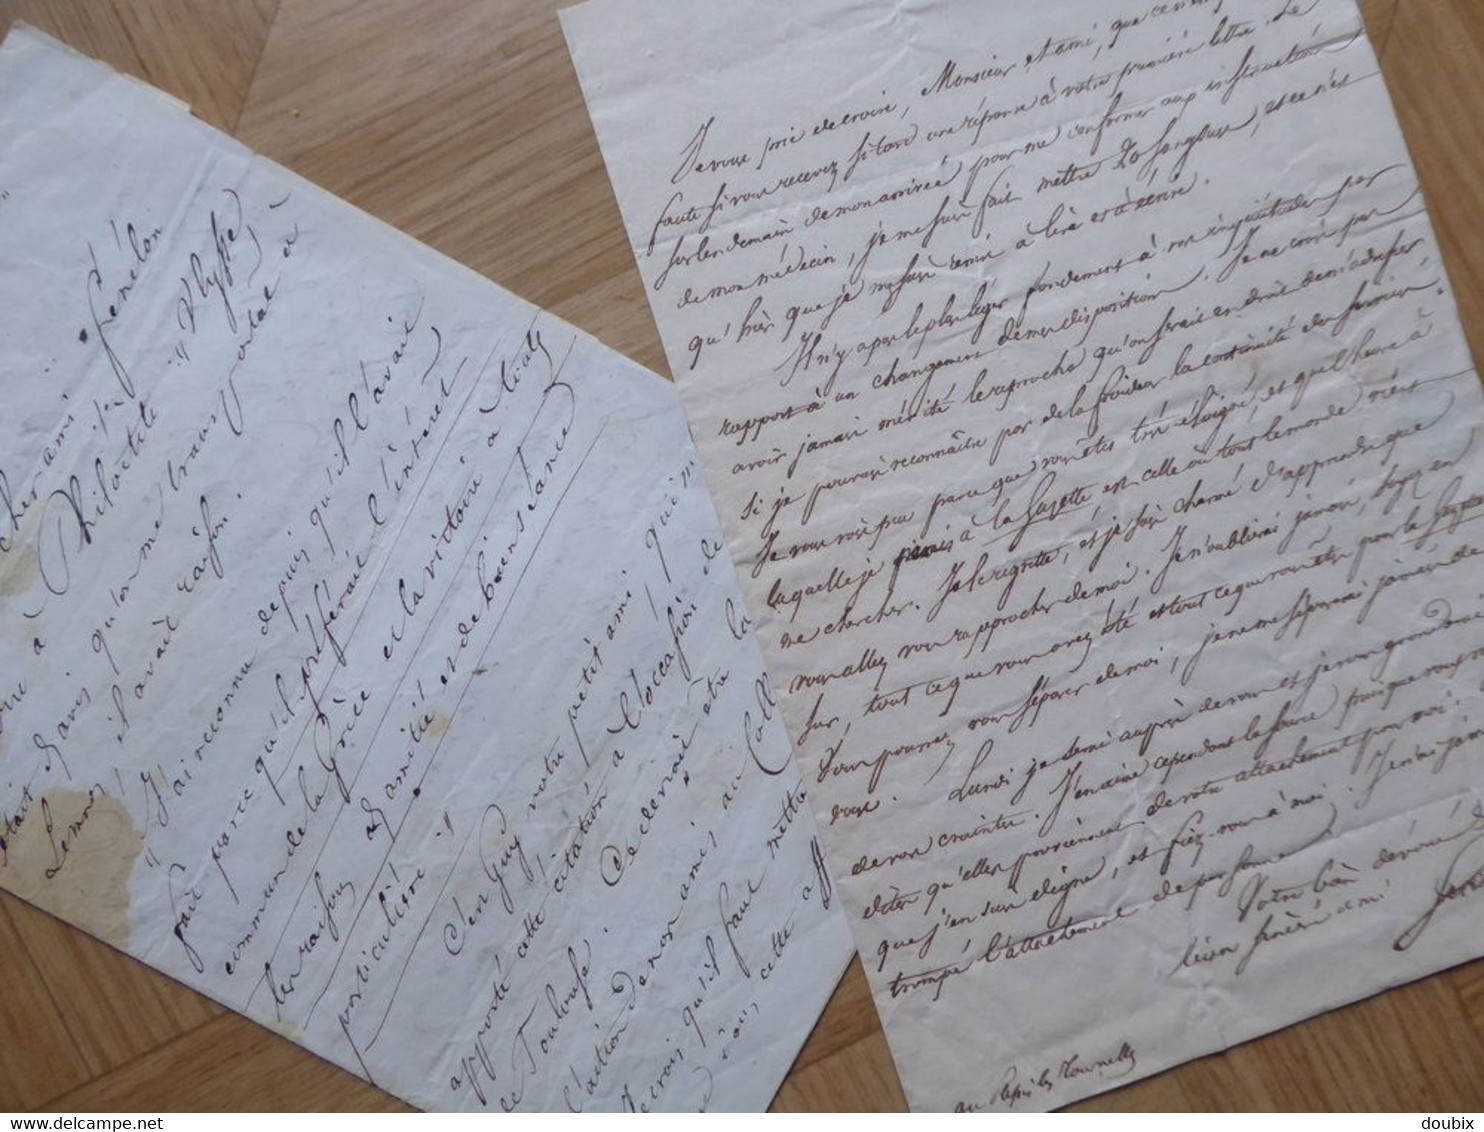 cher ami, Fénélon
à Philoctète " Ulysse
avis qu'on me transportat à
Lemnos, il avait raison.
" J'ai reconnu depuis qu'il l'avait
fait parce qu'il préférait l'intéret
commun de la Grèce et la victoire à
les raisons d'amitié et de bienséance
particulière "
C'en Guy votre petit ami qui m'
apporté cette citation à l'occasion
de Toulouse. Ce devrait être la
l'action de nos amis au Coll
Je crois qu'il faut mettre
cette aff
Je vous prie de croire, Monsieur et ami, que ce n'est
faute si vous recevez si tard une réponse à votre première lettre. Le
surlendemain de mon arrivée pour me conformer aux instructions
de mon médecin, je me suis fait mettre 20 sangsues, et ce n'est
qu'hier que je me suis remis à lire et à écrire.
Il n'y a pas le plus léger fondement à vos inquiétudes par
rapport à un changement de mes dispositions. Je ne crois pas
avoir jamais mérité le reproche qu'on serait en droit de m'adresser,
si je pouvais reconnaître par de la froideur la continuité des services.
Je vous vois peu parce que vous êtes très éloigné, et que l'heure à
laquelle je à la Gazette est celle où tout le monde vient
me chercher. Je le regrette, et je suis charmé d'apprendre que
vous allez vous rapprocher de moi. Je n'oublierai jamais, soyez en
sur, tout ce que vous avez été et tout ce que vous êtes pour la Gazette
Vous pourrez vous séparer de moi, je ne me séparerai jamais de
vous. Lundi je serai auprès de vous et je vous gronderai
de vos craintes. J'en aime cependant la source puisque vous
dites qu'elles proviennent de votre attachement pour moi.
que j'en suis digne, et fiez vous à moi. Je n'ai jamais
trompé l'attachement de personne.
Votre bien dévoué
bien sincère ami
au Plessis les Tournelles
delcampe.net
doubix